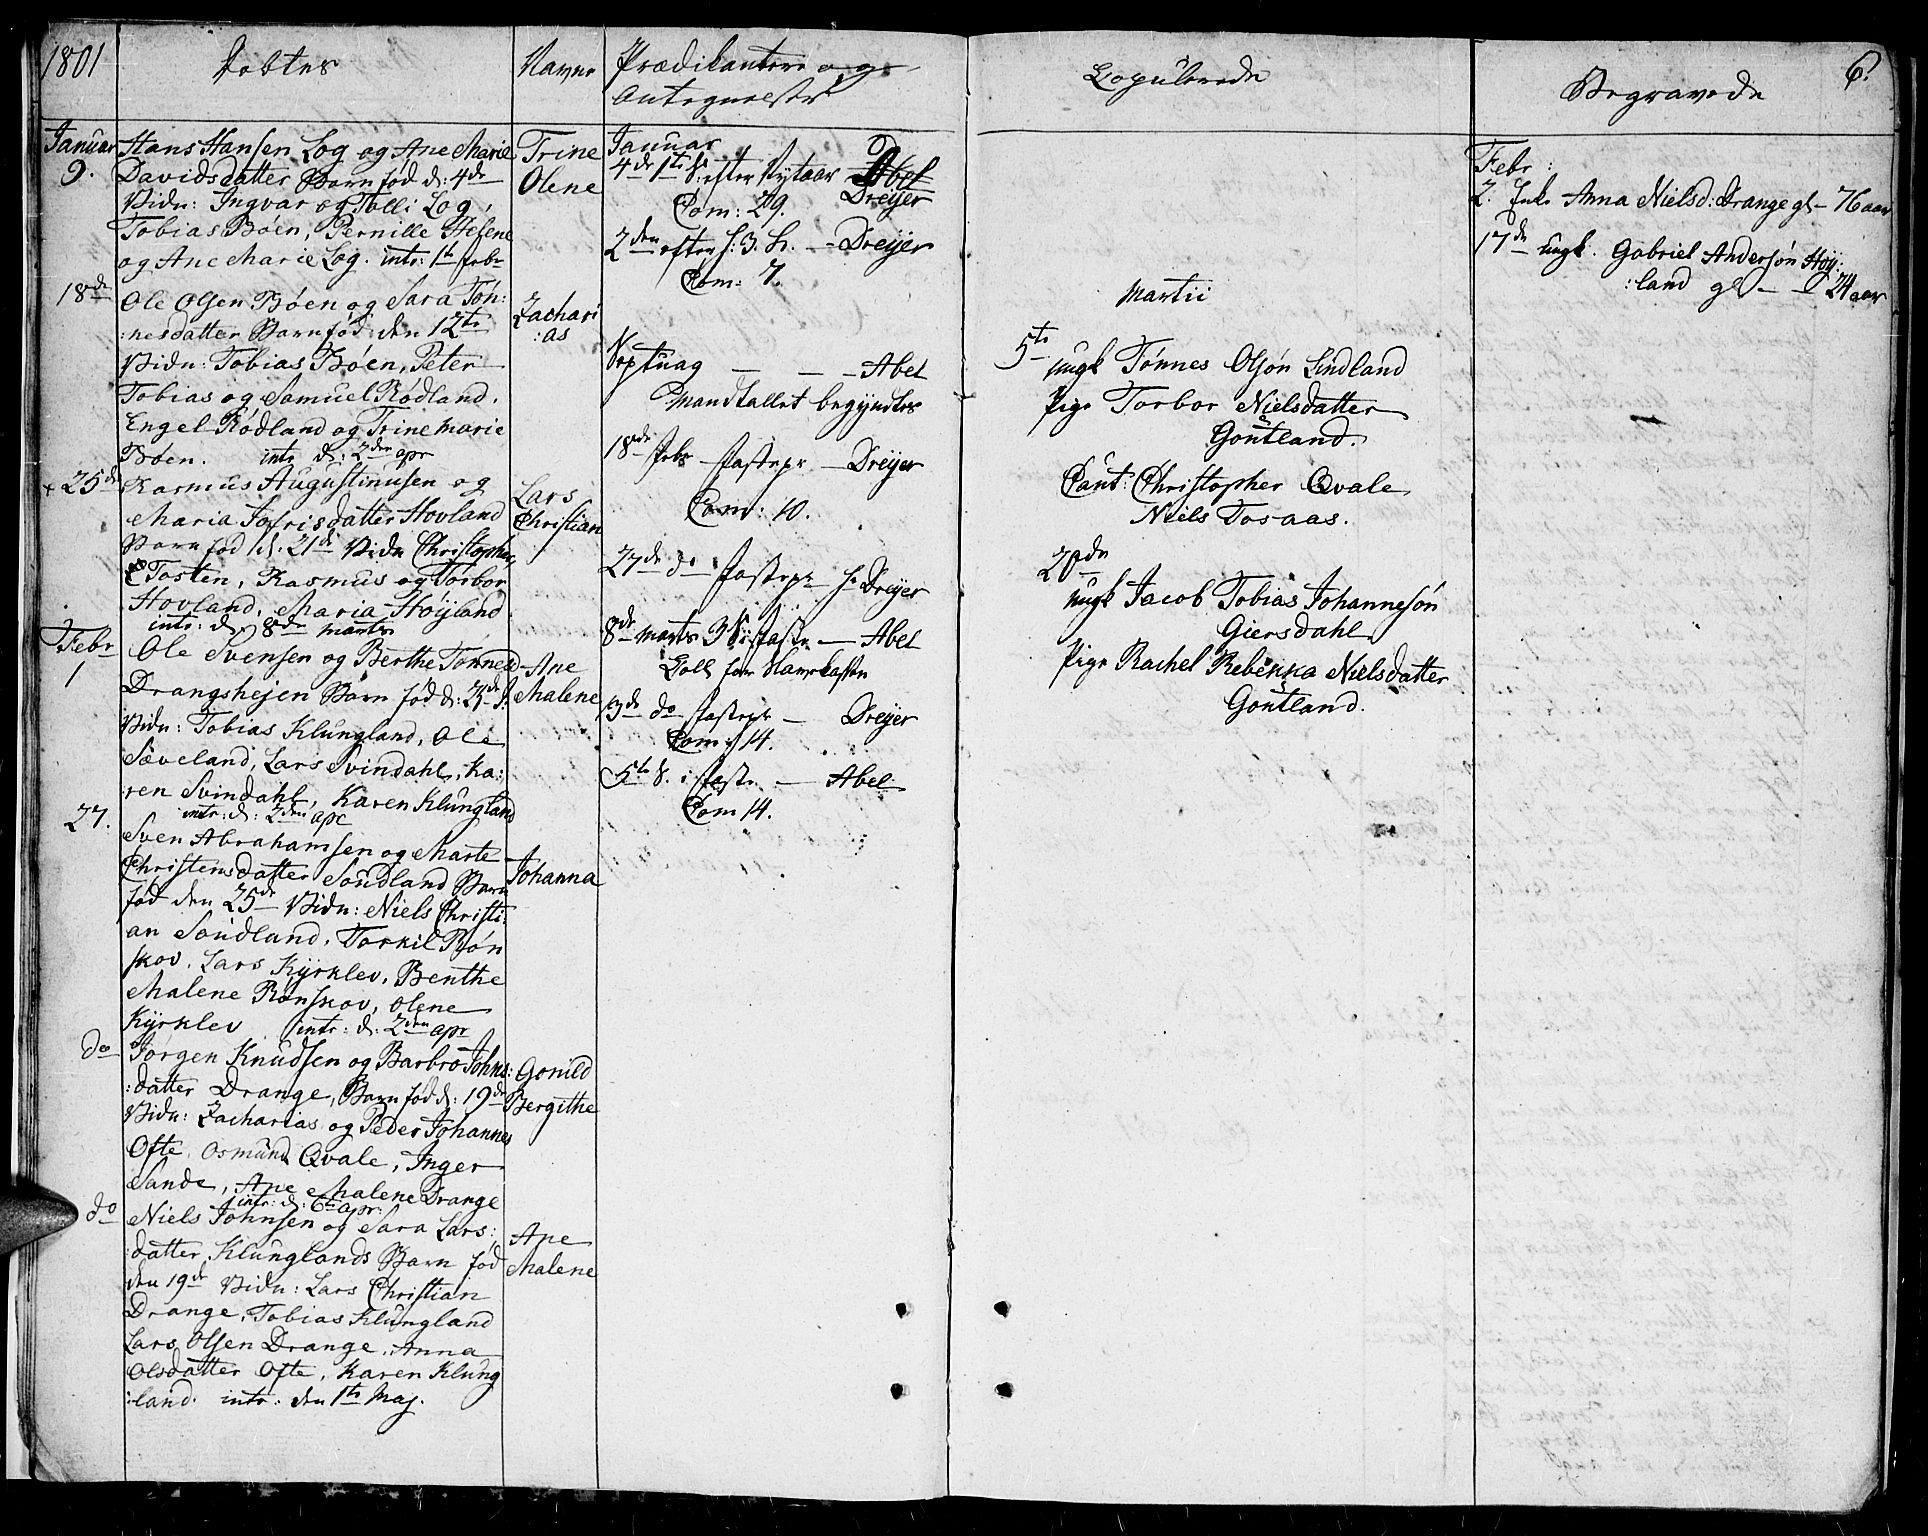 1801
Døbtes
Navne
Prædikantere og
Antegnelser
Januar
9.
Hans Hansen Log og Ane Marie
Davidsdatter Barn fød d: 4de
Vidn: Ingvar og Tolli Log,
Tobias Bøen, Pernille Helene
og Ane Marie Log. intr: 1te febr
Trine
Olene
18de
Ole Olsen Bøen og Sara Tøn:
:nesdatter Barn fød den 12te
Vidn: Tobias Bøen, Peter
Tobias og Samuel Rødland,
Engel Rødland og Trine Marie
Bøen. intr d: 2den apr
Zachari
:as
+ 25de
Rasmus Augustinusen og
Maria Jofrisdatter Hovland
Barn fød d. 21de Vidn Christopher
Tosten, Rasmus og Torbor
Hovland, Maria Høyland
intr: d. 8de marts
Lars
Christian
Febr
1
Ole Svensen og Berthe Tønnesd
Drangshejen Barn fød d: 25de
Vidn: Tobias Klungland, Ole
Sæveland, Lars Svindahl, Ka:
:ren Svindahl, Karen Klungland
intr: d: 2den apr
Ane
Malene
27.
Sven Abrahamsen og Marte
Christensdatter Søudland Barn
fød den 25de Vidn: Niels Christi:
an Søudland, Torkil Røn
skov, Lars Kyrklev, Benthe
Malene Rønskov, Olene
Kyrklev intr: d: 2den apr
Johanna
do
Jørgen Knudsen og Barbro Johns:
:datter Drange, Barn fød d: 19de
Vidn: Zacharias og Peder Johannes
Ofte, Osmund Qvale, Inger
Sande, Ane Malene Drange
intr: d: 6te apr:
Gonild
Bergithe
do
Niels Johnsen og Sara Lars:
datter Klunglands Barn fød
den 19de Vidn: Lars Christian
Drange, Tobias Klungland
Lars Olsen Drange, Anna
Olsdatter Ofte, Karen Klung
:land. intr: den 1te Maj.
Ane
Malene
Januar
4de 1te S: efter Nytaar — Abel
Dreyer
Com: 29.
2den efter h: 3. k. — Dreyer
Com: 7.
Septuag — — Abel
Mandtallet begyndtes
18de Febr fastepr — Dreyer
Com: 10.
27de do fastepr — Dreyer
8de marts 3 S i faste — Abel
13de do fastepr — Dreyer
Com: 14.
5te S. i faste — Abel
Com 14.
Copulerede
Martii
5te
ungk Tønnes Olsøn Lindland
Pige Torbor Nielsdatter
Goutland.
Caut: Christopher Qvale
Niels Tosaas.
20de
ungk Jacob Tobias Johannesøn
Giersdahl
Pige Rachel Rebekka Nielsdatter
Goutland.
Begravede
6.
Febr:
2. Enke Anna Nielsd: Drange gl — 76 aar
17de ungk. Gabriel Andersøn Høy:
:land gl — — 24 aar